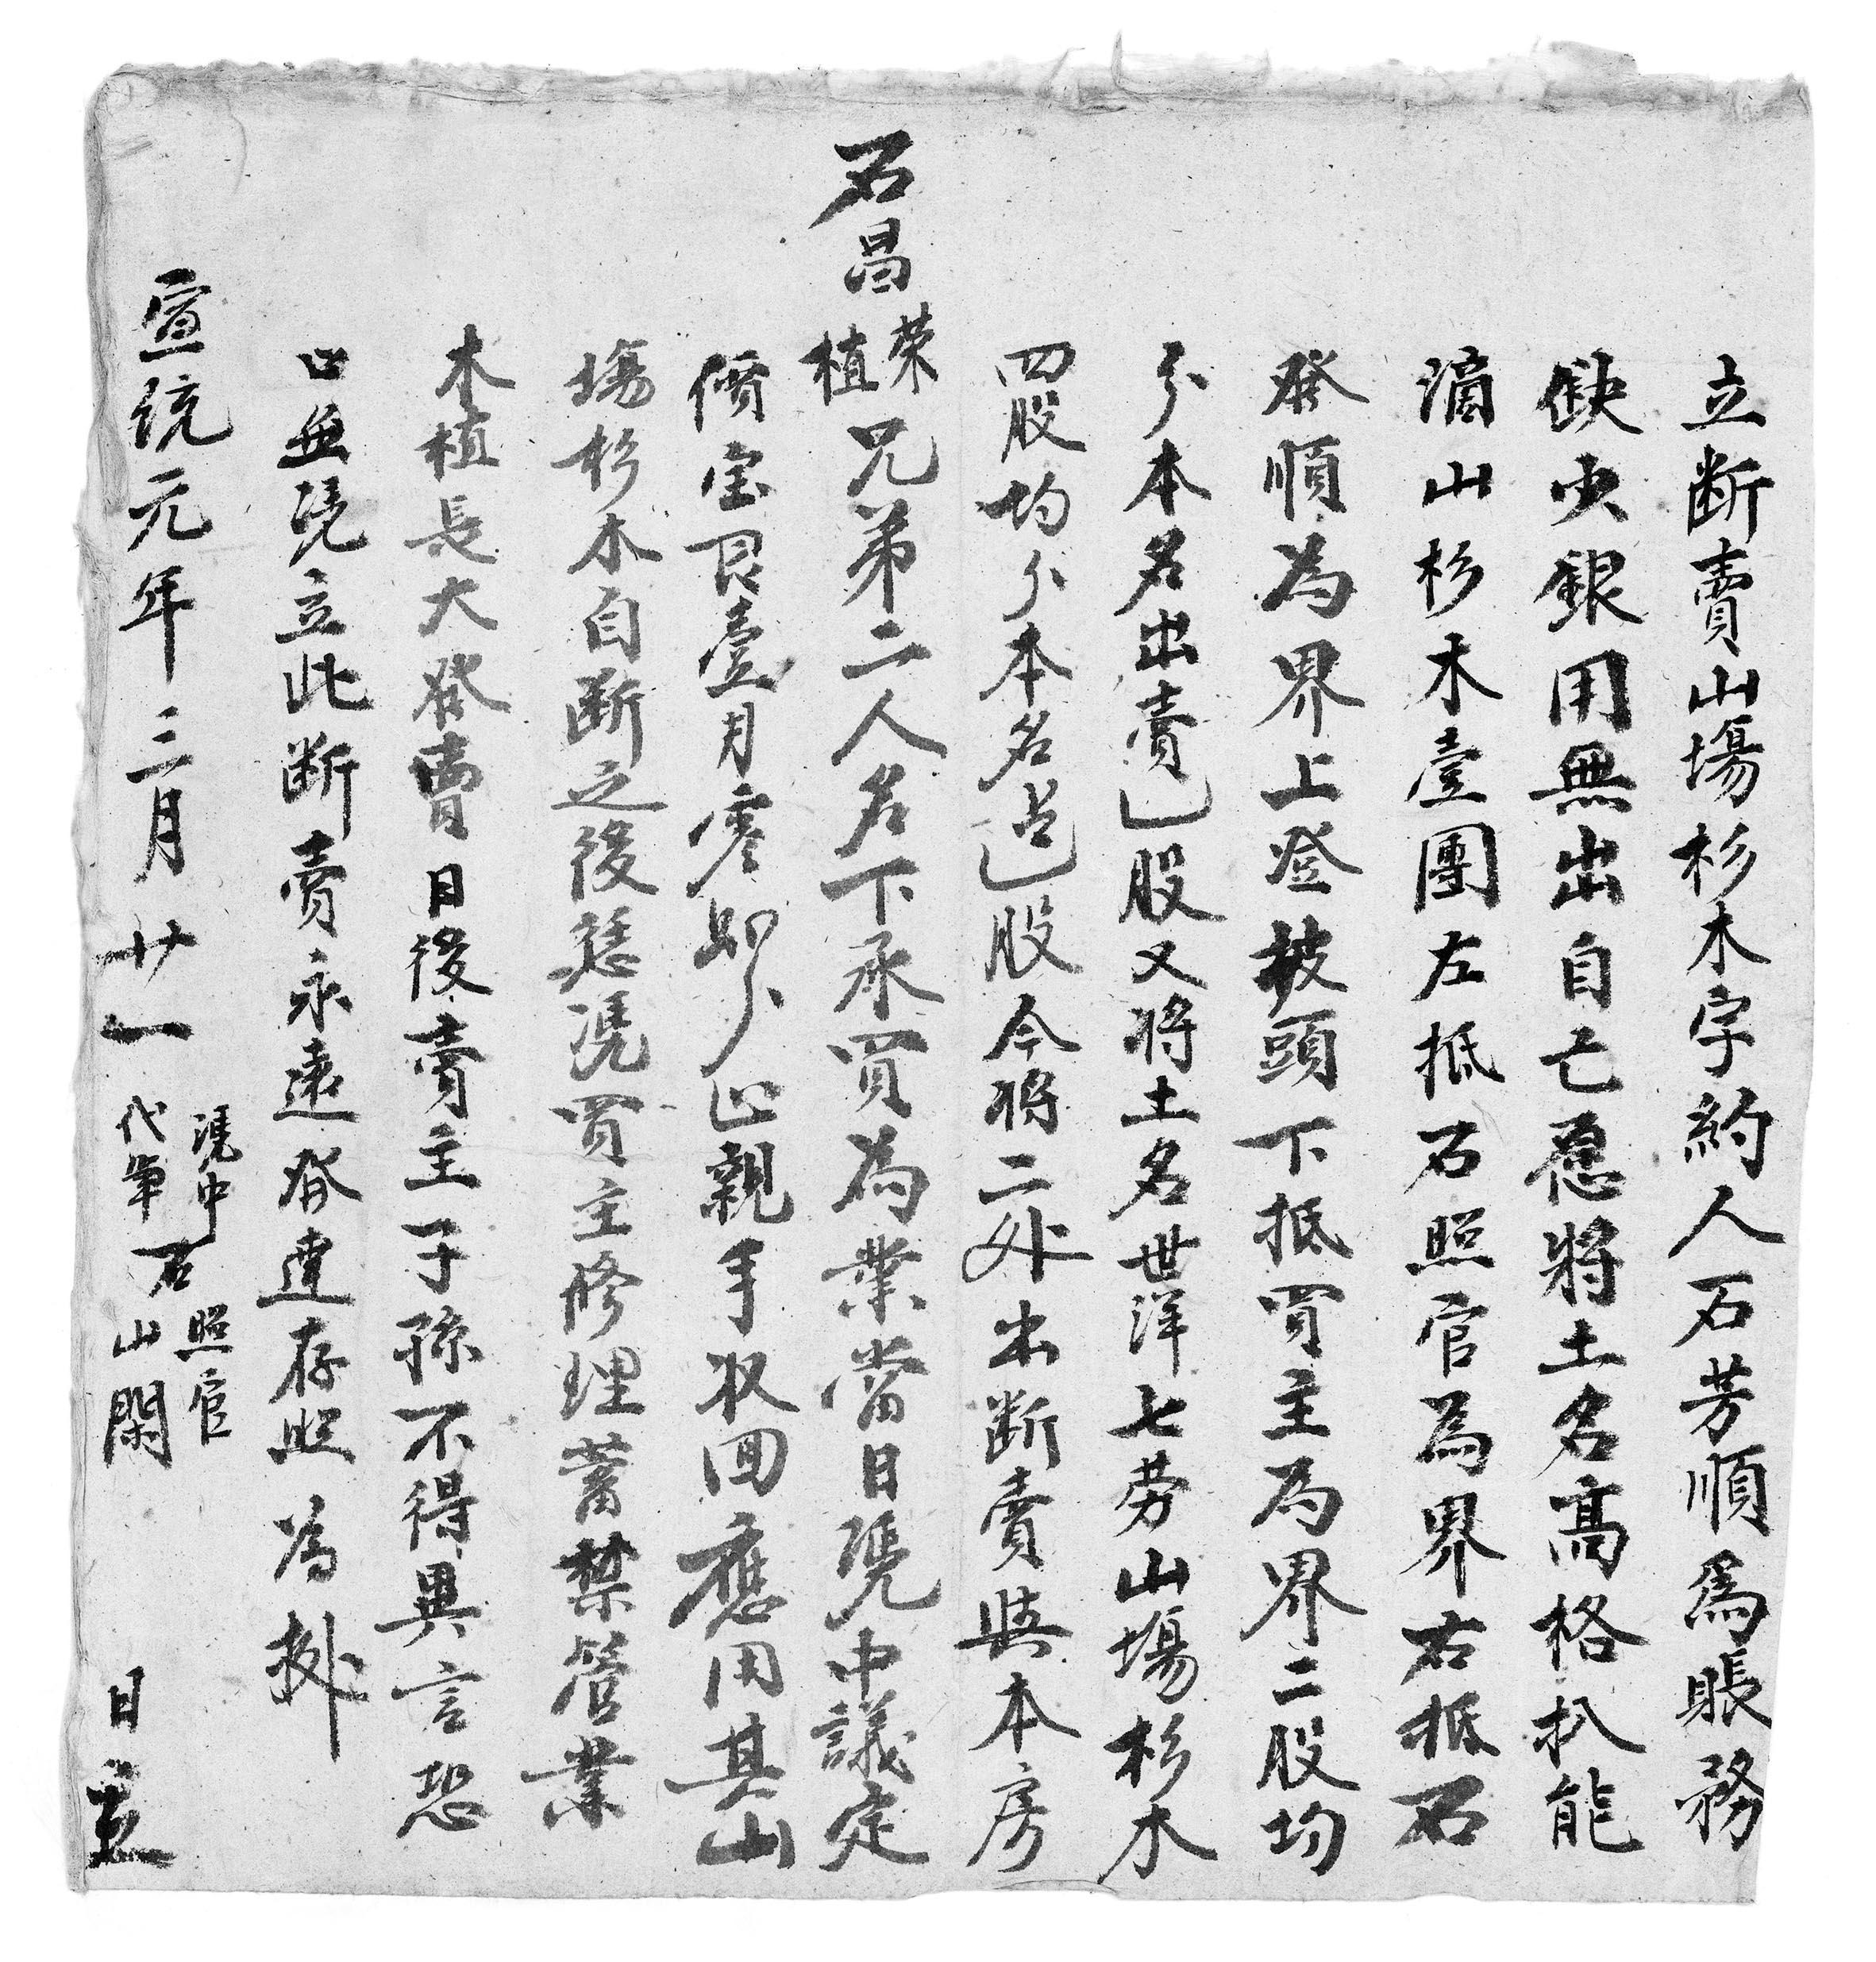 立断賣山塲杉木字約人石芳順爲賬務
缺少銀用無出自己愿將土名高格扒能
滴山杉木壹團左抵石照官為界右抵石
發順為界上登坡頭下抵買主為界二股均
分本名出賣乚股又将土名世洋七劳山塲杉木
四股均分本名占乚股今將二处出断賣與本房
石昌荣植兄弟二人名下承買為業當日凴中議定
價宝艮壹月零 分正親手収回應用其山
塲杉木自断之後恁凴買主修理蓄禁管業
木植長大發賣日後賣主子孫不得異言恐
口無凴立此断賣永遠發達存照為挬
宣統元年三月廿一 凴中 代笔 石 照官 山閑 日立